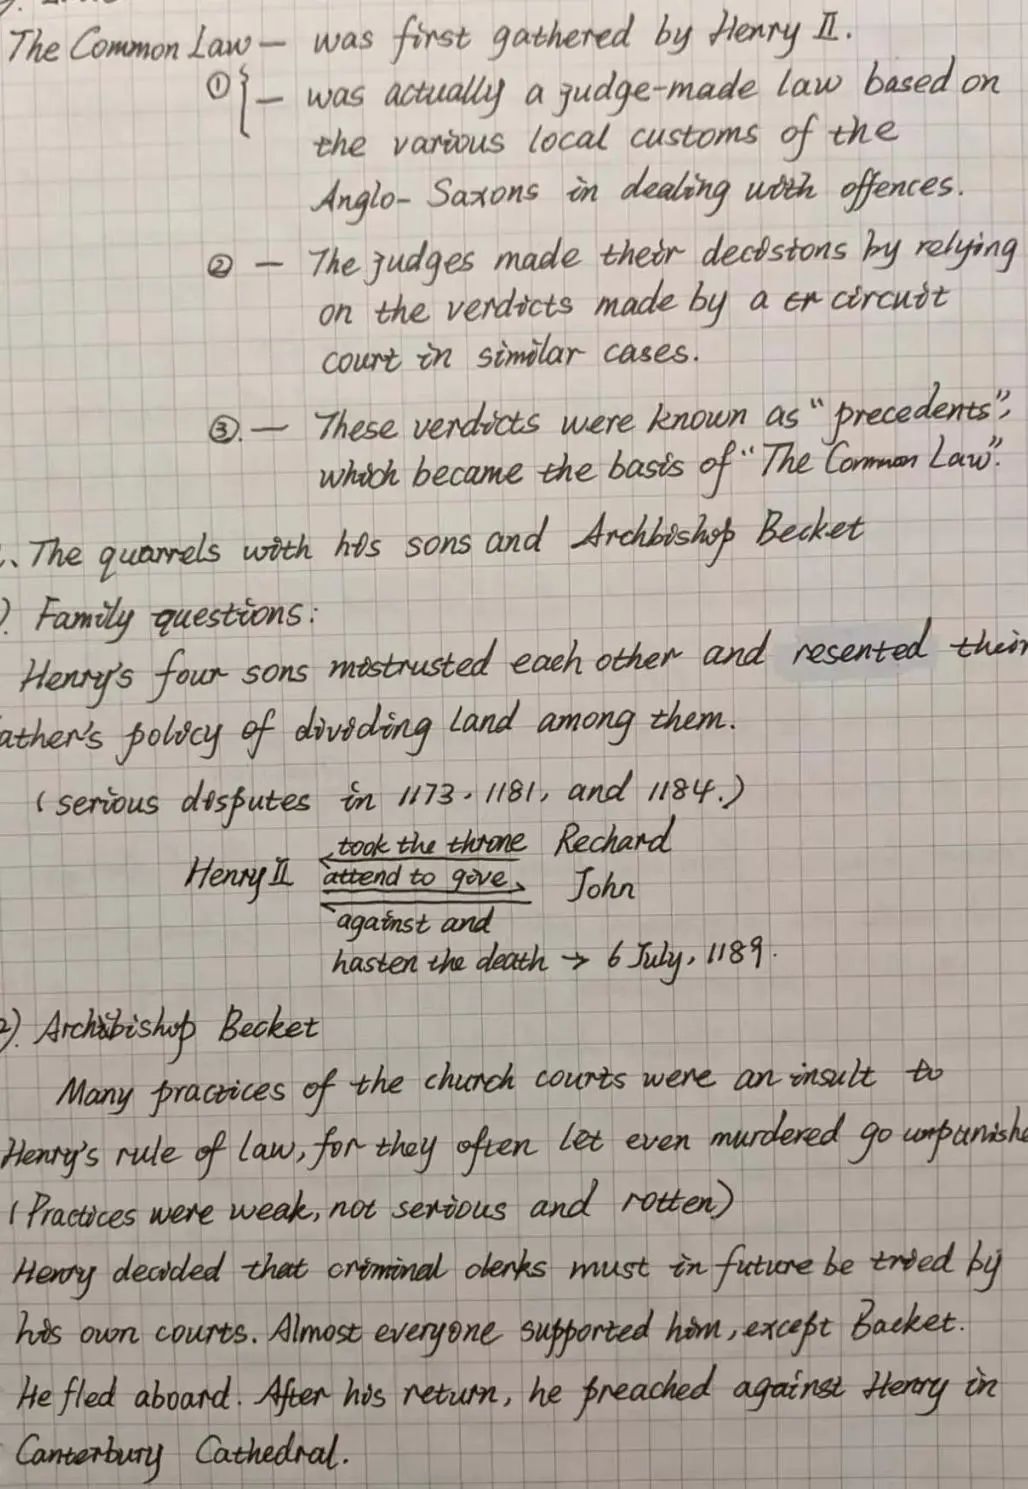 The Common Law — was first gathered by Henry II.
① { — was actually a judge-made law based on
the various local customs of the
Anglo-Saxons in dealing with offences.
② — The judges made their decisions by relying
on the verdicts made by a circuit
court in similar cases.
③. — These verdicts were known as "precedents",
which became the basis of "The Common Law".
、The quarrels with his sons and Archbishop Becket
). Family questions:
Henry's four sons mistrusted each other and resented their
ather's policy of dividing land among them.
(serious disputes in 1173, 1181, and 1184.)
took the throne Rechard
Henry II attend to give John
against and
hasten the death → 6 July, 1189.
2). Archibishop Becket
Many practices of the church courts were an insult to
Henry's rule of law, for they often let even murdered go unpunishe
(Practices were weak, not serious and rotten)
Henry decided that criminal clerks must in future be tried by
his own courts. Almost everyone supported him, except Backet.
He fled aboard. After his return, he preached against Henry in
Canterbury Cathedral.